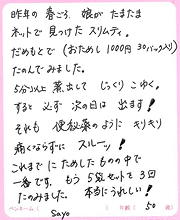 昨年の春ごろ、娘がたまたま
ネットで見つけたスリムティ。
だめもとで(おためし1000円30パック入り)
たのんでみました。
5分りんご蒸出して じっくりこゆく。
すると 必ず 次の日は 出ます!
それも 便秘薬のように キリキリ
痛くならずに スルーッ!
これまでに ためしたものの中で
一番です。もう5袋セットを3回
たのみました。 本当にうれしい!
ペンネーム( Sayo ) 年齢( 50 歳)